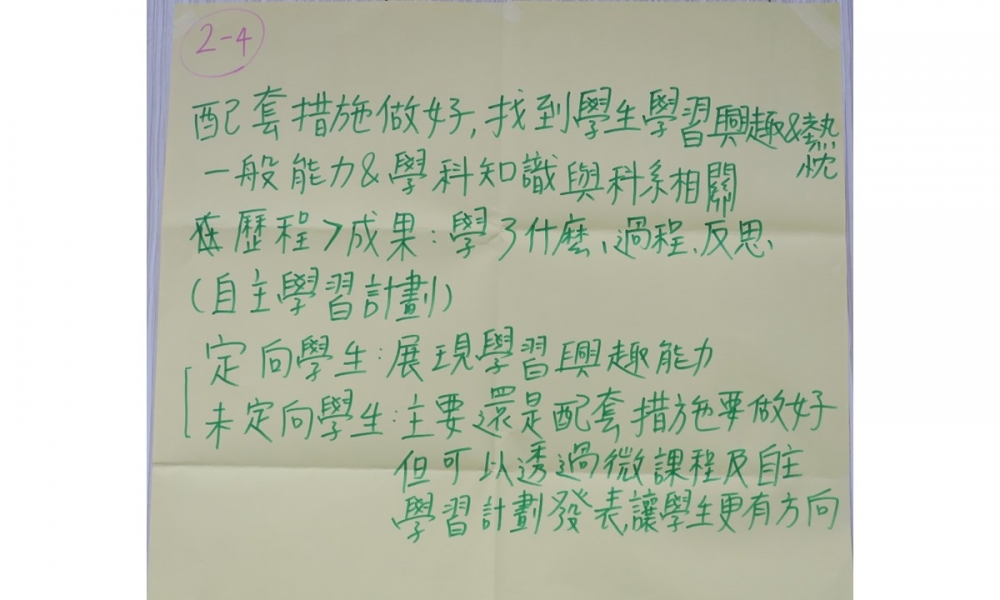 2-4
配套措施做好,找到學生學習興趣&熱忱
一般能力&學科知識與科系相關
在歷程>成果:學了什麼、過程、反思、
(自主學習計劃)
定向學生:展現學習興趣能力
未定向學生:主要還是配套措施要做好
但可以透過微課程及自主
學習計劃發表,讓學生更有方向